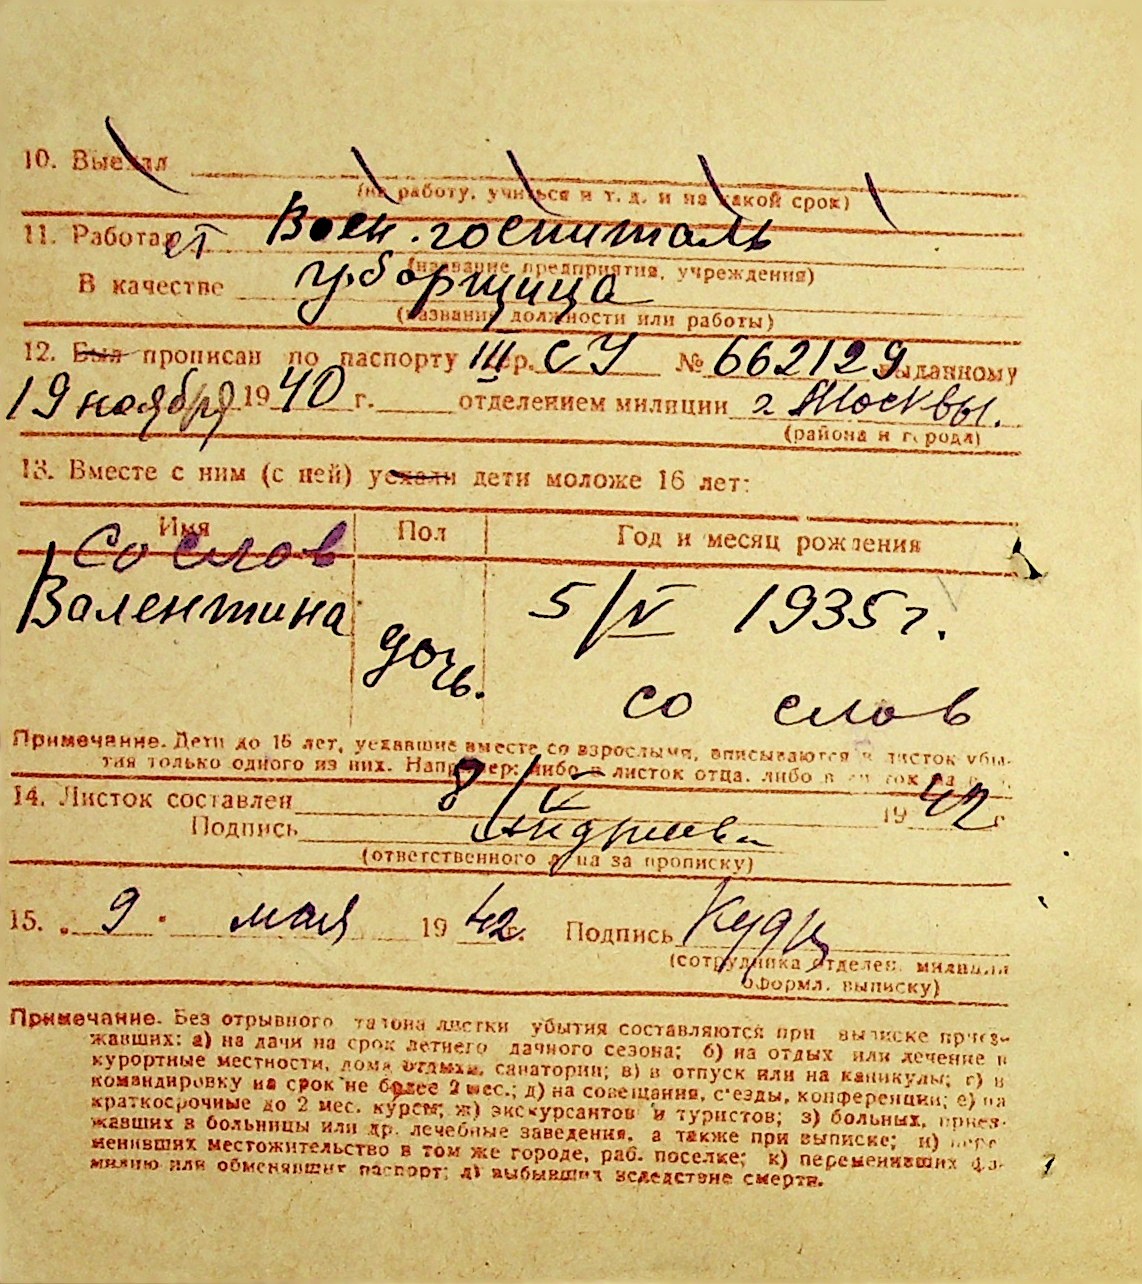 10. Выехал
(на работу, учиться и т. д. и на какой срок)
11. Работает Воен. госпиталь
(название предприятия, учреждения)
В качестве уборщица
(название должности или работы)
12. Был прописан по паспорту III сер. СУ № 662129 выданному
19 ноября 1940 г. отделением милиции г Москвы.
(района и города)
13. Вместе с ним (с ней) уехали дети моложе 16 лет:
Имя Пол Год и месяц рождения
Со слов
Валентина дочь. 5/V 1935 г.
со слов
Примечание. Дети до 16 лет, уехавшие вместе со взрослыми, вписываются в листок убы-
тия только одного из них. Например: либо в листок отца, либо в листок
14. Листок составлен 8/V 1942 г.
Подпись
(ответственного лица за прописку)
15. „9" мая 1942 г. Подпись
(сотрудника отделен. милиции
оформл. выписку)
Примечание. Без отрывного талона листки убытия составляются при выписке приез-
жавших: а) на дачи на срок летнего дачного сезона; б) на отдых или лечение в
курортные местности, дома отдыха, санатории; в) в отпуск или на каникулы; г) в
командировку на срок не более 2 мес.; д) на совещания, с'езды, конференции; е) на
краткосрочные до 2 мес. курсы; ж) экскурсантов и туристов; з) больных, приез-
жавших в больницы или др. лечебные заведения, а также при выписке; и) пере-
менивших местожительство в том же городе, раб. поселке; к) переменивших фа-
милию или обменявших паспорт; л) выбывших вследствие смерти.